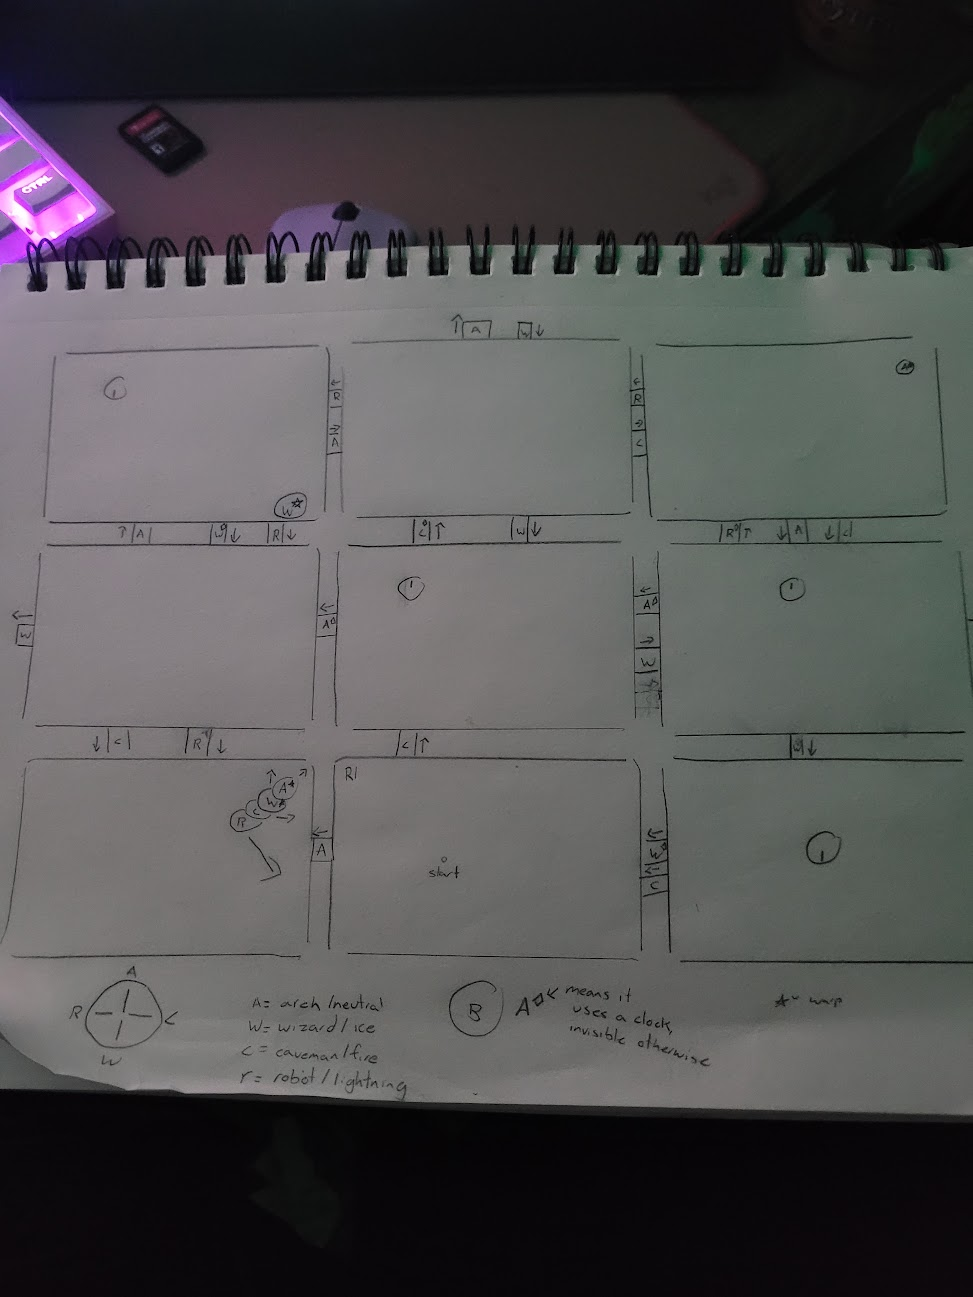 CTRL
↑ A W ↓
1
A☆
←
R
→
A
←
R
→
C
W☆
↑ A W ↓ R ↓
C ↑ W ↓
R ↑ ↓ A ↓ C
←
W
←
A
1
←
A
→
W
1
↓ C R ↓
C ↑
↓
R C W A
R1
←
A
start
←
W
←
C
1
A
R C
W
A = arch/neutral
W = wizard/ice
C = caveman/fire
r = robot/lightning
B
A ← means it
uses a clock,
invisible otherwise
☆ = warp